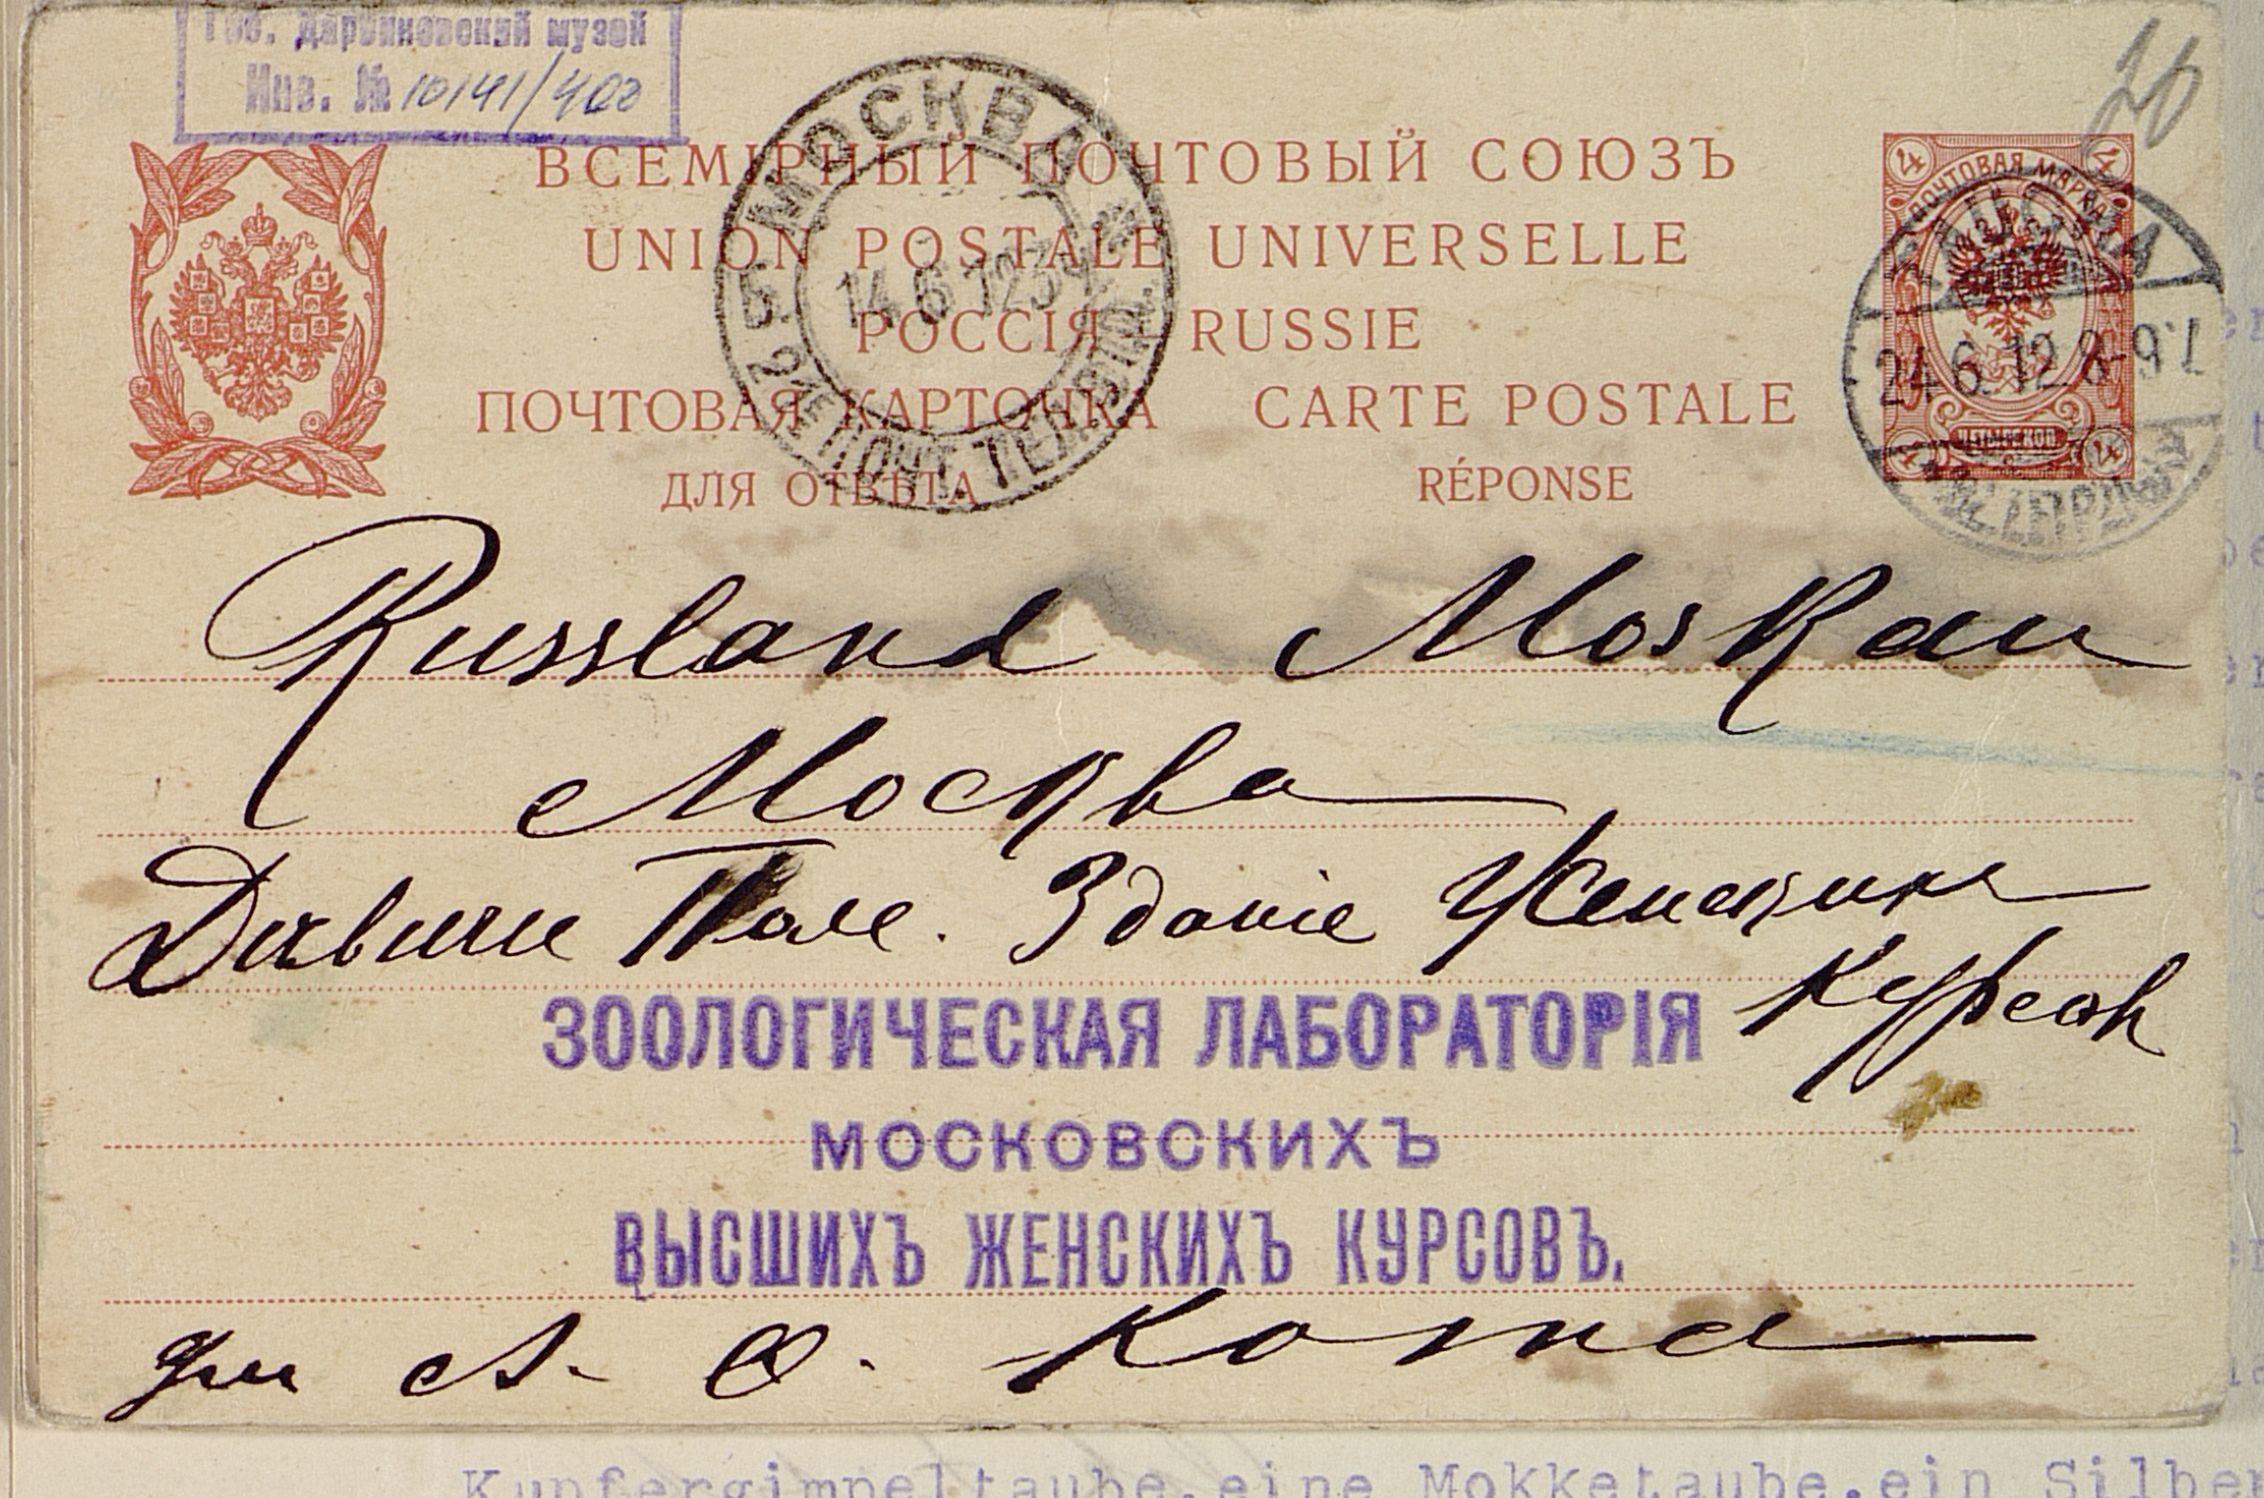 Гос. Дарвиновский музей
Инв. № 10141/400
26
ВСЕМІРНЫЙ ПОЧТОВЫЙ СОЮЗЪ
UNION POSTALE UNIVERSELLE
РОССІЯ – RUSSIE
ПОЧТОВАЯ КАРТОЧКА CARTE POSTALE
ДЛЯ ОТВѢТА RÉPONSE
МОСКВА
14 6 12
ПОЧТОВАЯ МАРКА
4 4
24.6.12.8-9
4 4
Russland Moskau
Москва
Дѣвичье Поле. Зданіе Женскихъ
Курсовъ
ЗООЛОГИЧЕСКАЯ ЛАБОРАТОРІЯ
МОСКОВСКИХЪ
ВЫСШИХЪ ЖЕНСКИХЪ КУРСОВЪ.
для А. Ѳ. Котса
Kupfergimpeltaube, eine Mokketaube, ein Silber